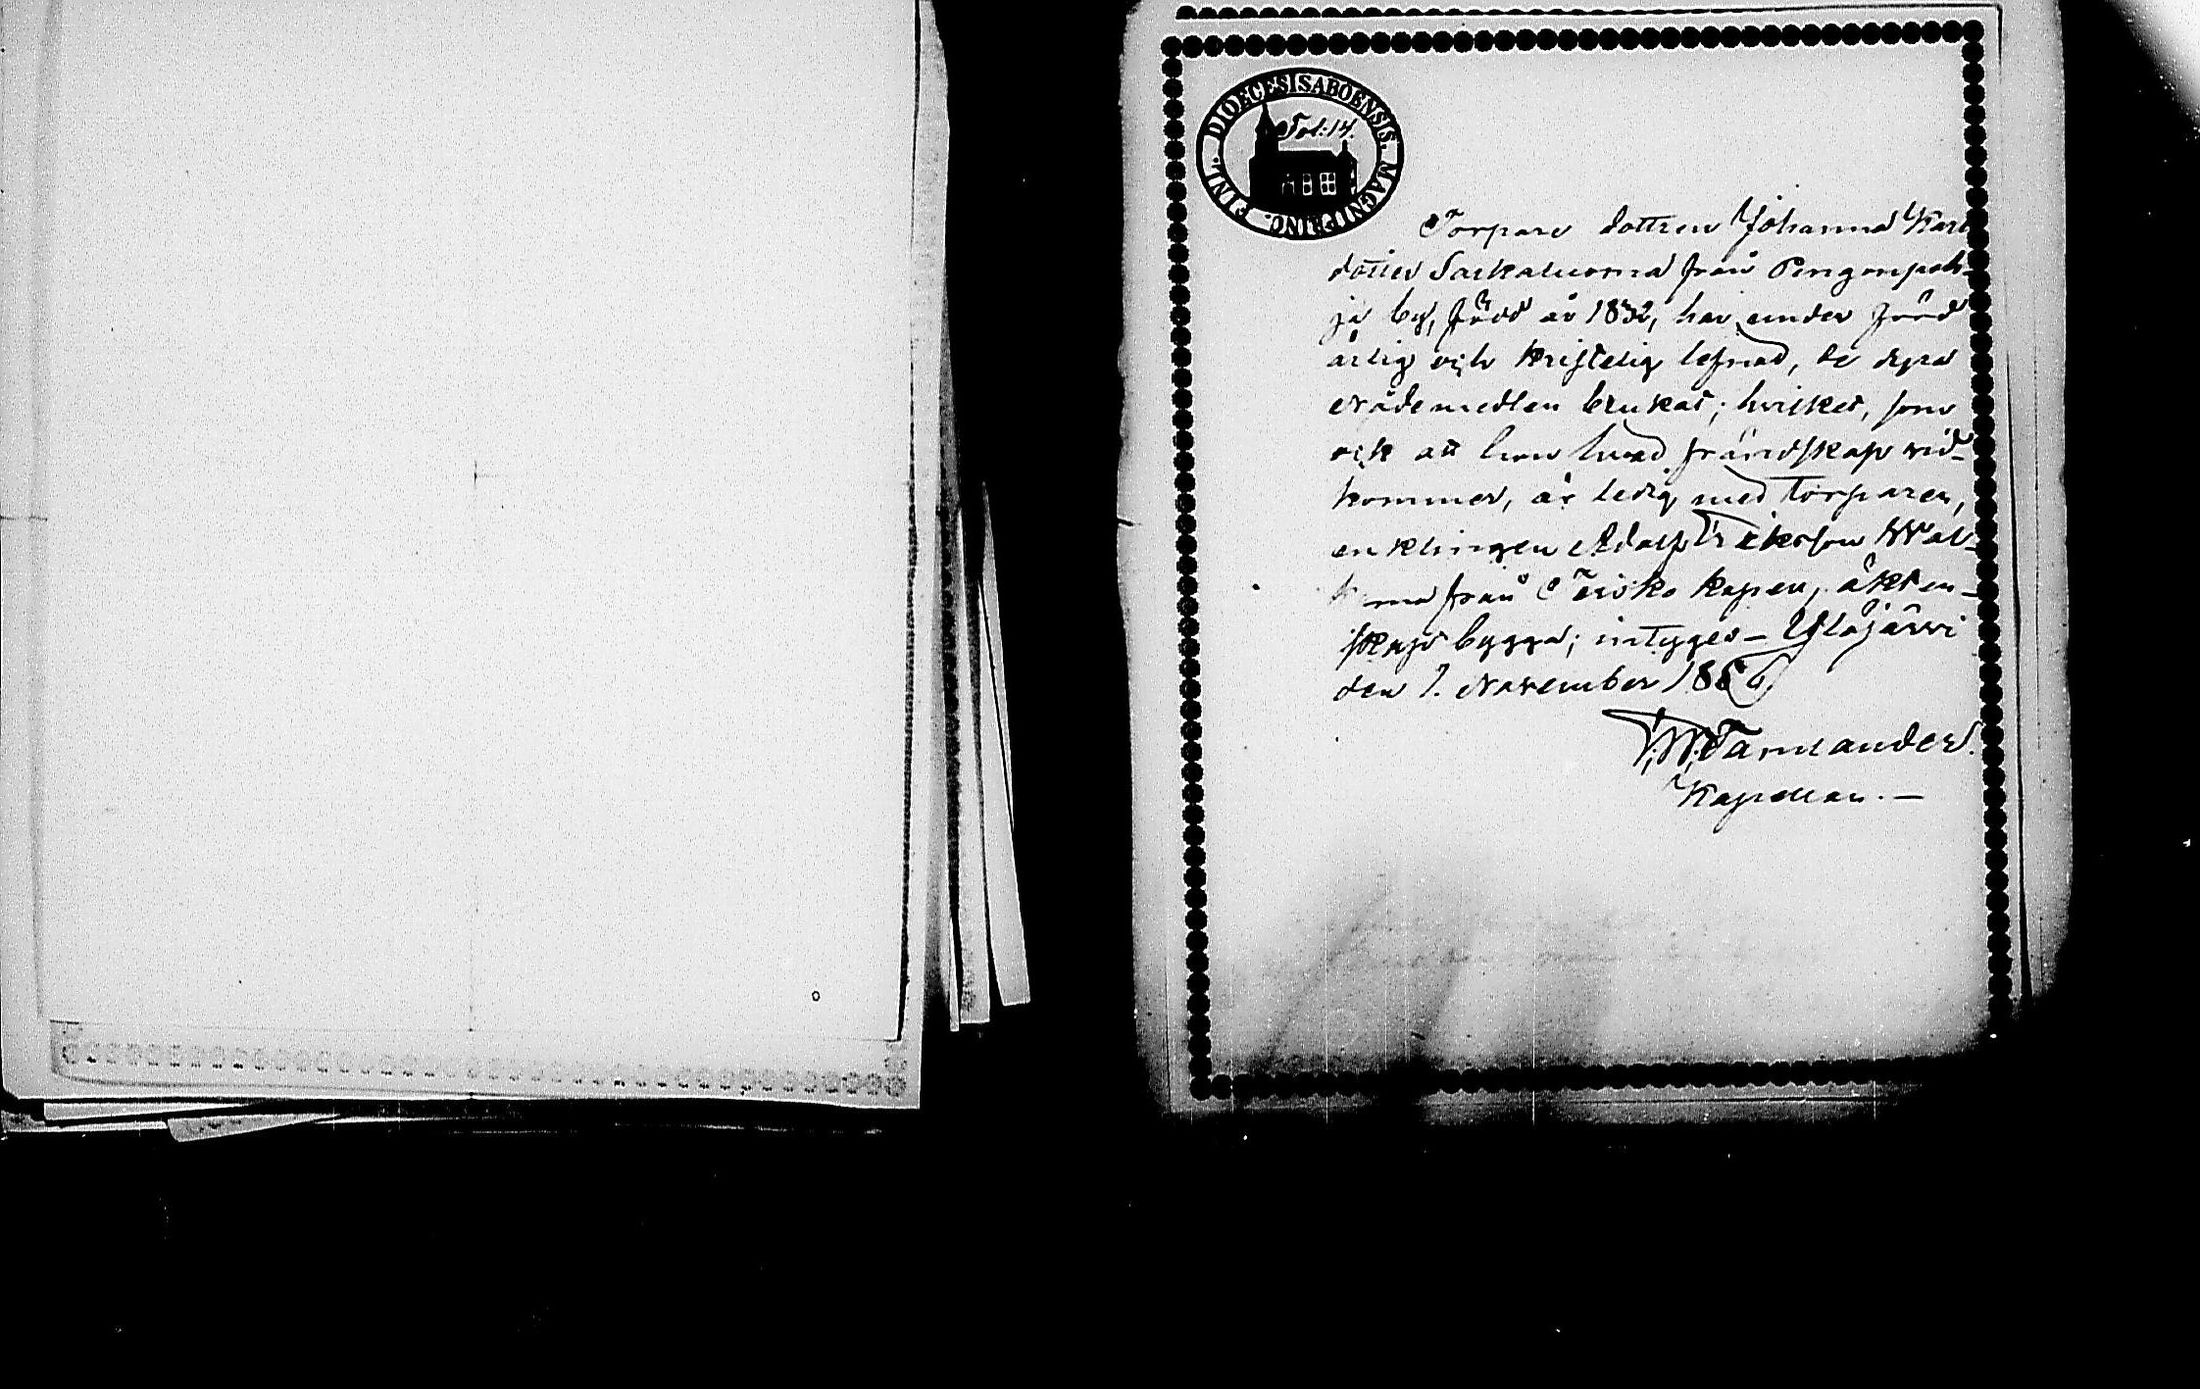 DIOECESIS ABOENSIS. MAGNI PRINC. FINL.
Fol: 14.
Torpare dottren Johanna Karl
dotter Saikaluoma från Pengonpoh-
ja by, född år 1832, har under
ärlig och kristelig lefnad, de dyra
nådemedlen brukat; hvilket, som
ock att hon hvad frändskap vid-
kommer, är ledig med torparen,
enklingen Adolf Eriksson Wal-
kama från Teisko kapell, äkten-
skap bygga; intygas – Ylöjärvi
den 7. November 1886
Kapellan. –